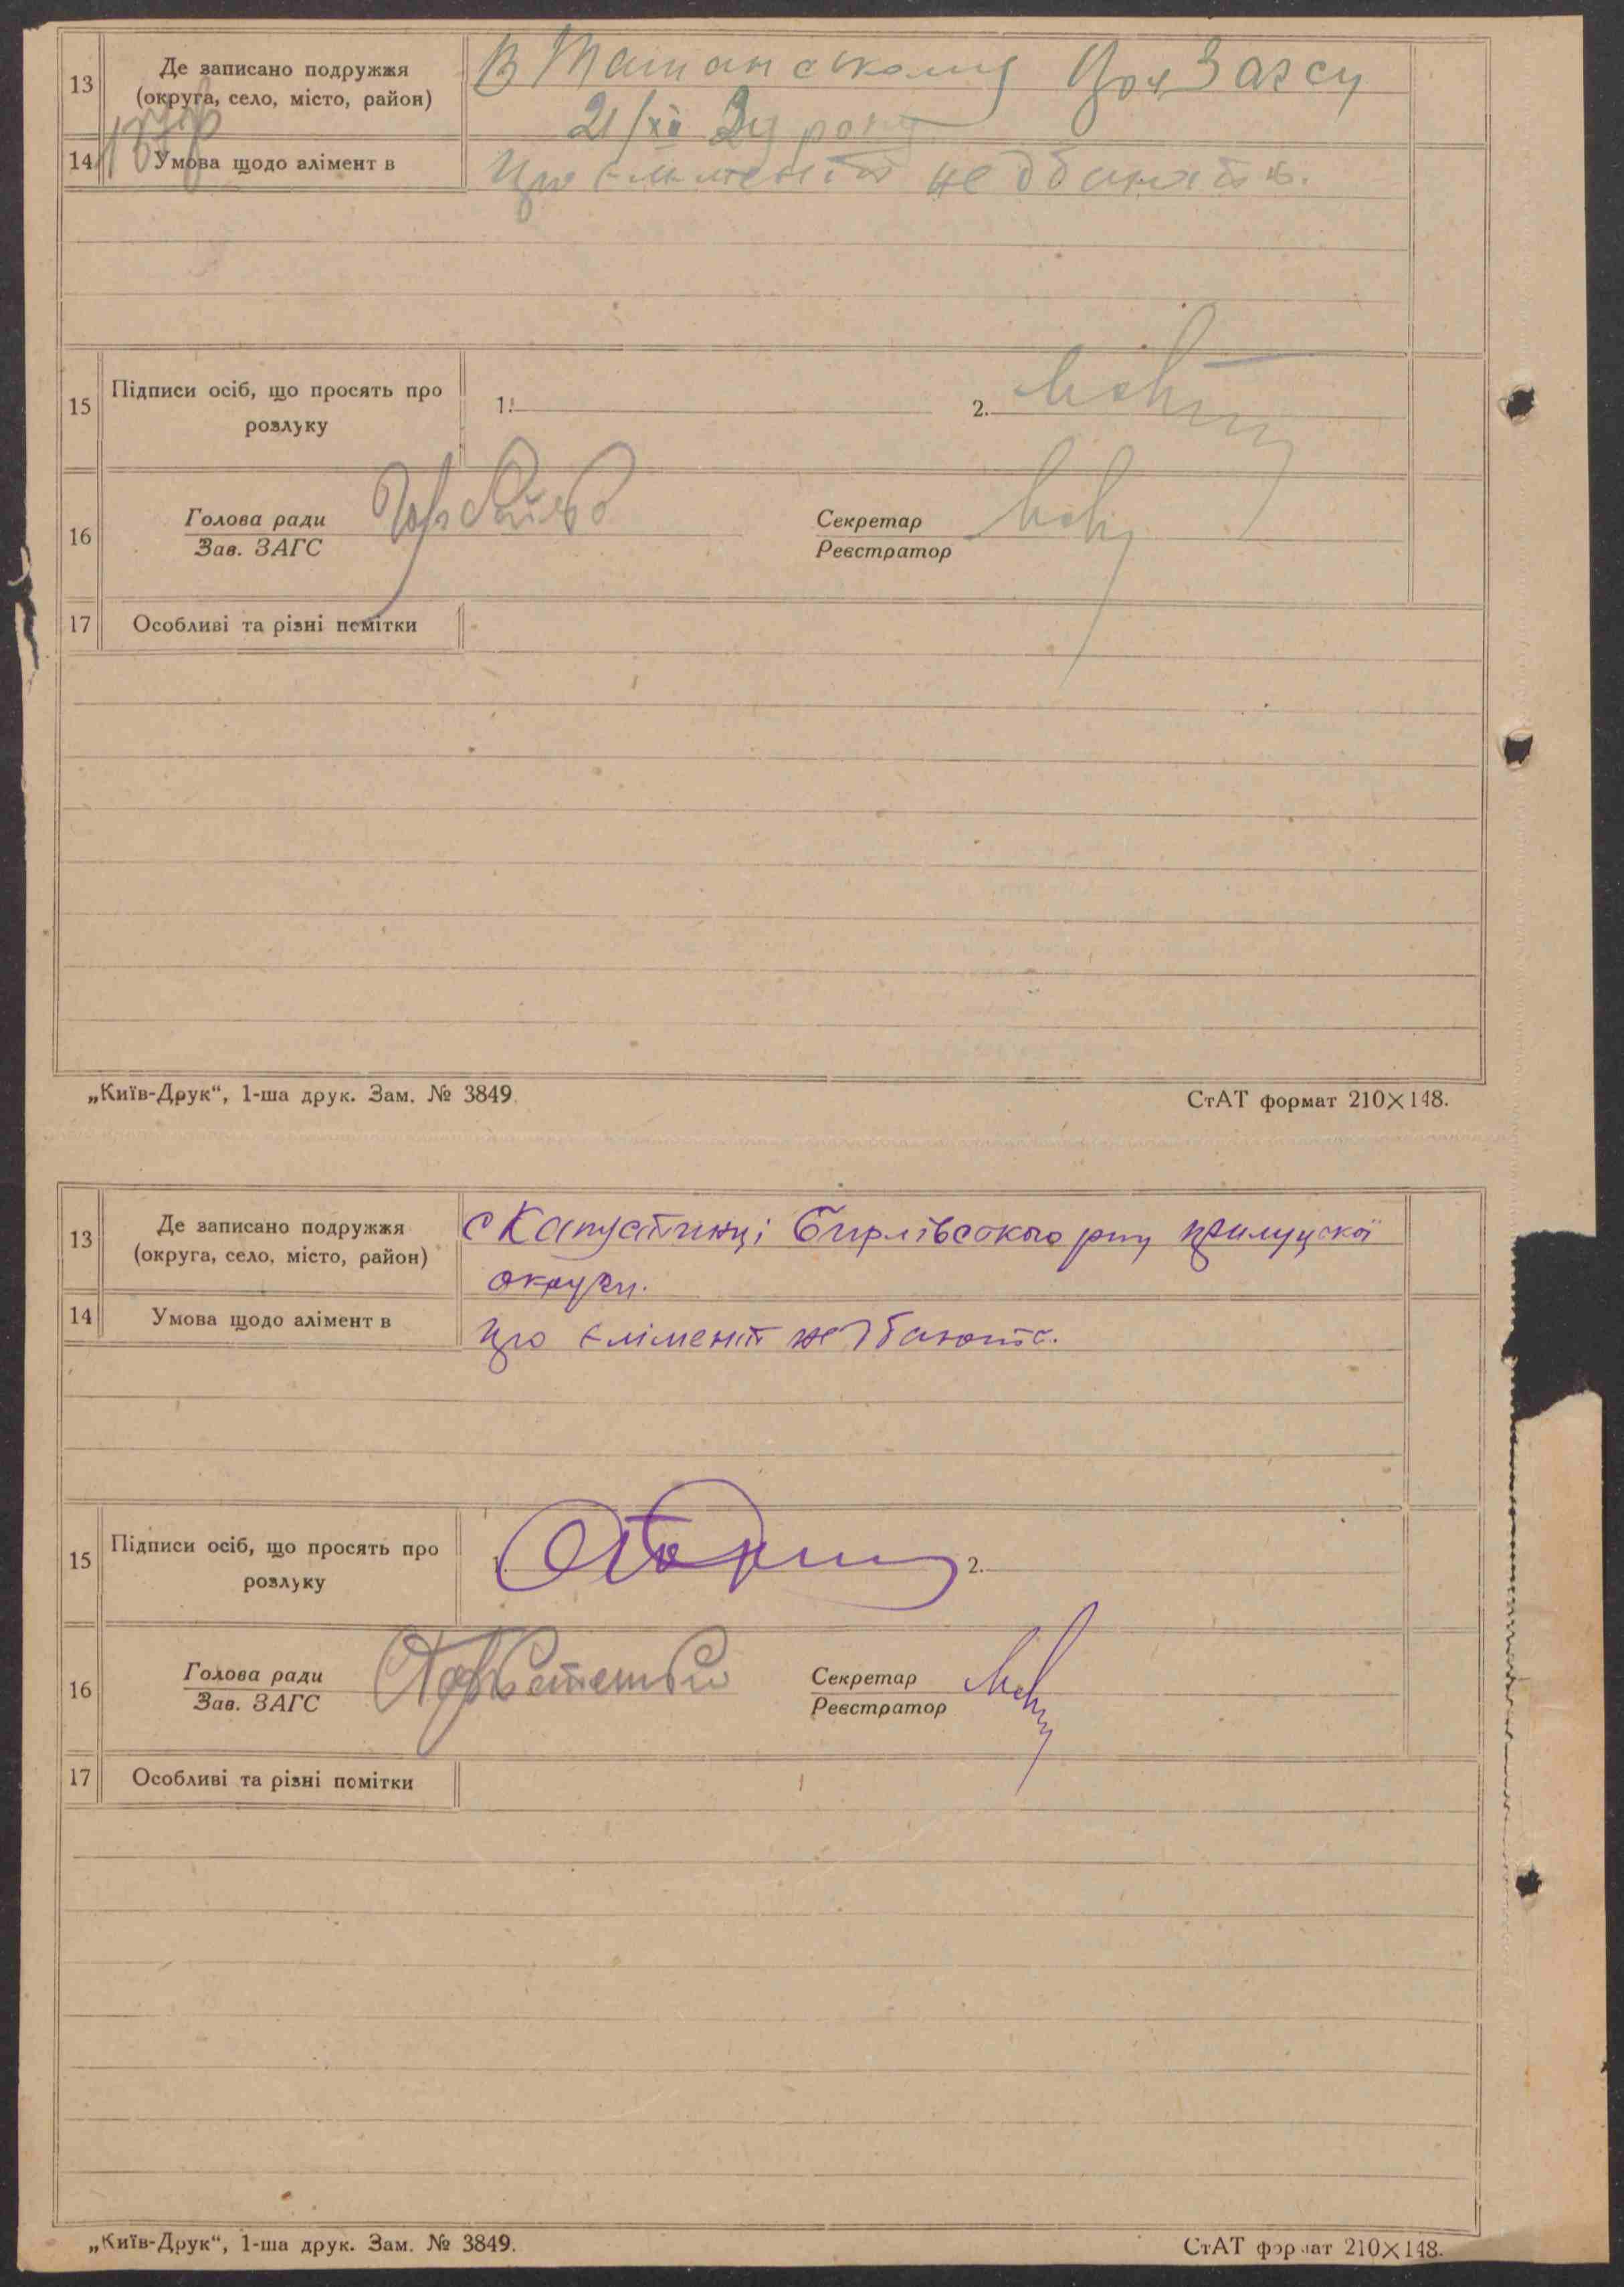 13
Де записано подружжя
(округа, село, місто, район)
В
Загсу
21/XII року
14
Умова щодо алімент в
про елемент не дбають.
15
Підписи осіб, що просять про
розлуку
1.
2.
16
Голова ради
Зав. ЗАГС
Секретар
Реєстратор
17
Особливі та різні помітки
„Київ-Друк“, 1-ша друк. Зам. № 3849.
СтАТ формат 210×148.
13
Де записано подружжя
(округа, село, місто, район)
с Капустинці прилуцкої
округи.
14
Умова щодо алімент в
про елімент не дбають.
15
Підписи осіб, що просять про
розлуку
2.
16
Голова ради
Зав. ЗАГС
Секретар
Реєстратор
17
Особливі та різні помітки
„Київ-Друк“, 1-ша друк. Зам. № 3849.
СтАТ формат 210×148.